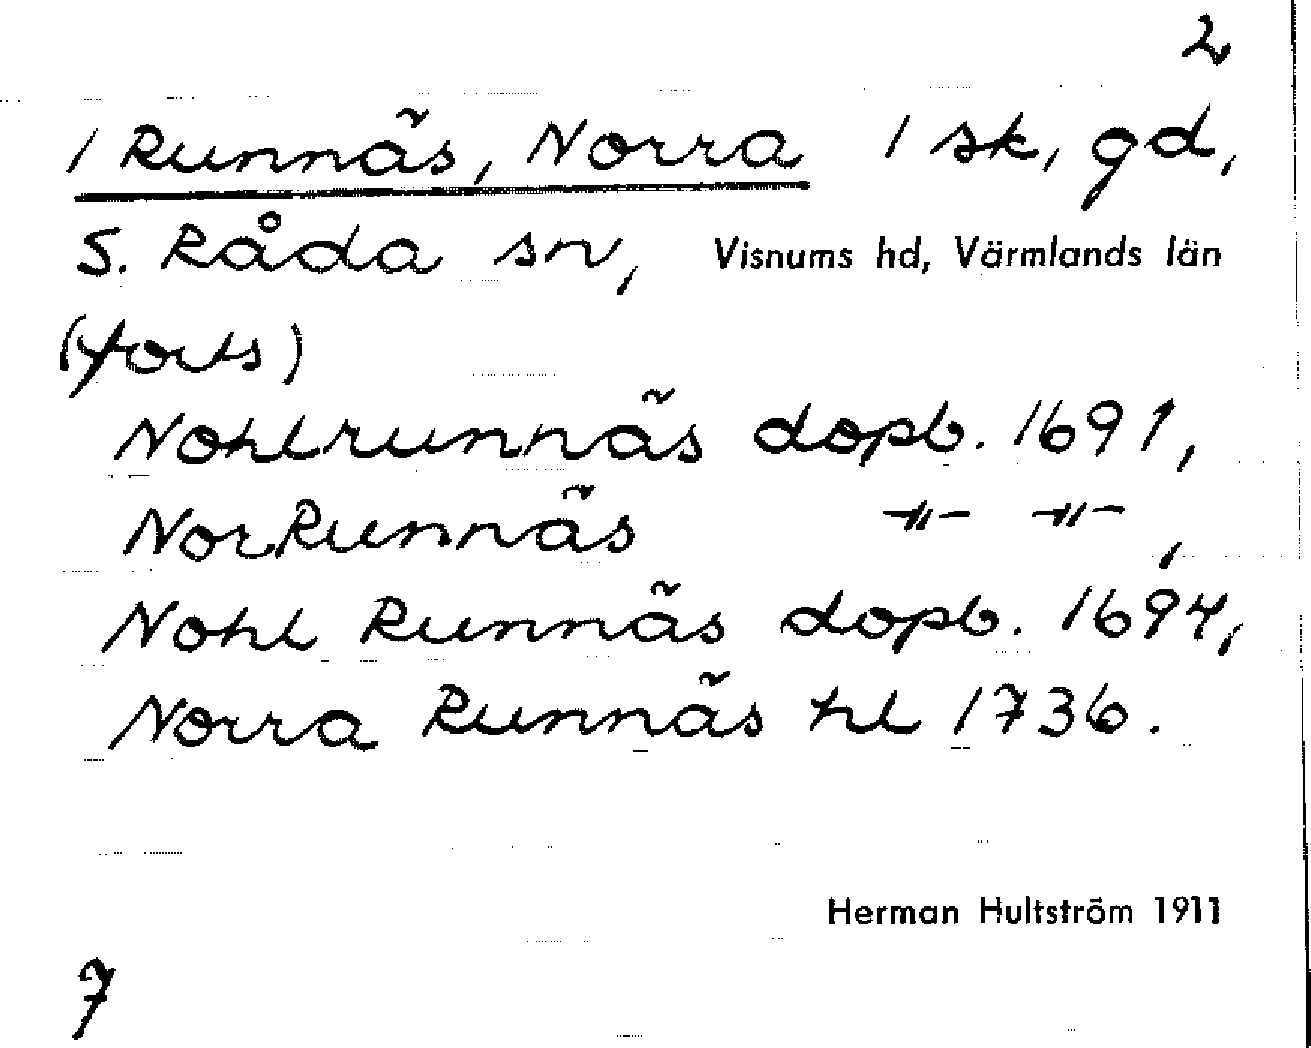 2
/ Runnäs, Norra / sk, gd,
S. Råda sn, Visnums hd, Värmlands län
(forts)
Nohlrunnäs dopb. 1691,
NorRunnäs -"- -"-,
Nohl Runnäs dopb. 1694,
Norra Runnäs hl 1736.
Herman Hultström 1911
7